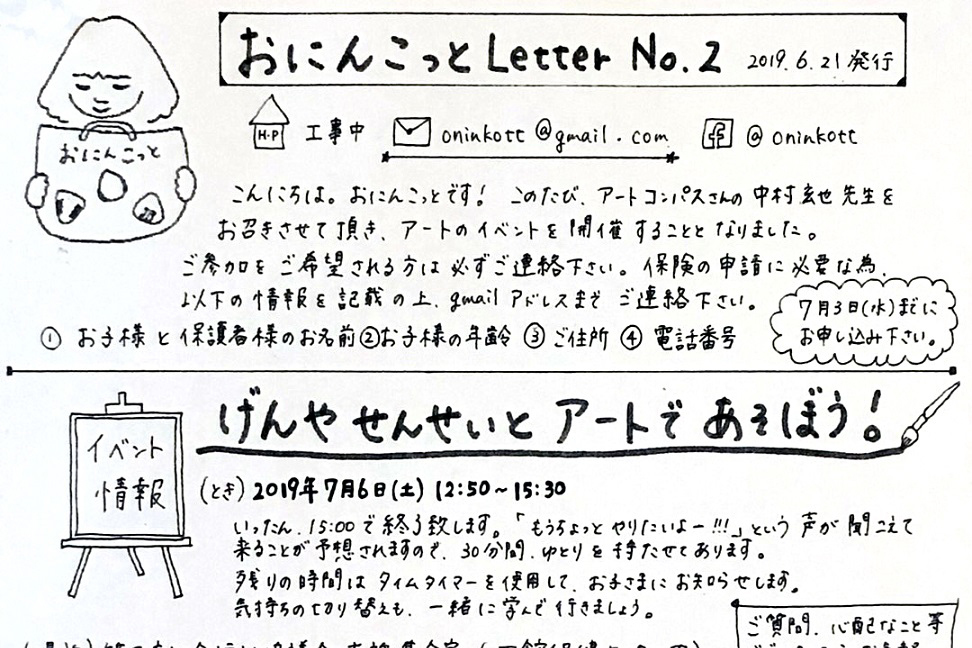 おにんこっと Letter No.2 2019.6.21 発行
おにんこっと
H・P 工事中 oninkott@gmail.com @oninkott
こんにちは。おにんこっとです! このたび、アートコンパスさんの 中村玄也 先生を
お招きさせて頂き、アートのイベントを開催することとなりました。
ご参加をご希望される方は必ずご連絡下さい。保険の申請に必要な為、
以下の情報を記載の上、gmailアドレスまでご連絡下さい。
7月3日(水)までに
お申し込み下さい。
① お子様と保護者様のお名前 ②お子様の年齢 ③ ご住所 ④ 電話番号
げんやせんせいと アートで あそぼう!
イベント
情報
(とき) 2019年7月6日(土) 12:50~15:30
いったん、15:00で終了致します。「もうちょっとやりたいよー!!!」という声が聞こえて
来ることが予想されますので、30分間、ゆとりを持たせてあります。
残りの時間はタイムタイマーを使用して、お子さまにお知らせします。
気持ちの切り替えも、一緒に学んで行きましょう。
ご質問、心配なこと等